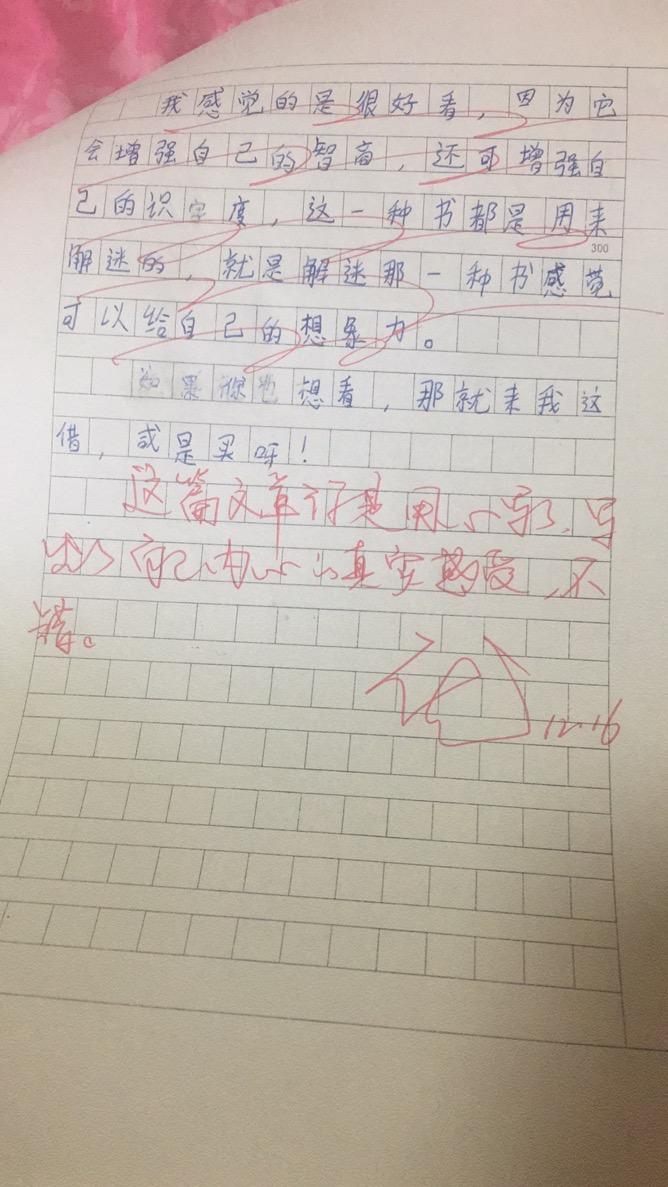 我感觉的是很好看，因为它
会增强自己的智商，还可增强自
己的识字度，这一种书都是用来
300
解迷的，就是解迷那一种书感觉
可以给自己的想象力。
如果你也想看，那就来我这
借，或是买呀！
这篇文章你是用心写了，写
出了自己内心的真实感受，不
错。
12.16